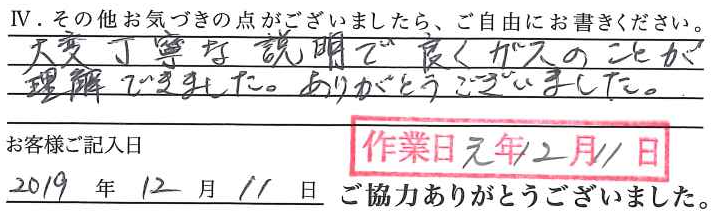 Ⅳ. その他お気づきの点がございましたら、ご自由にお書きください。
大変丁寧な説明で良くガスのことが
理解できました。ありがとうございました。
お客様ご記入日
作業日 元年12月11日
2019 年 12 月 11 日
ご協力ありがとうございました。